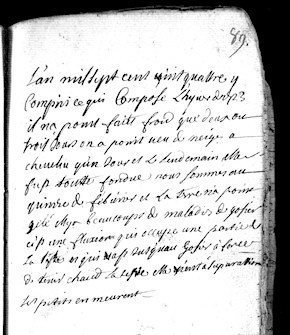 89.
L'an mil sept cent vint quattre y
Compris ce qui Compose L'hyver de 1723
il n'a point faits froid que deux ou
trois Jours on a point veu de neige a
qu'un Jours et Le Lendemain elle
fust toutte fondue nous sommes au
quinze de febvrier et La terre n'a point
gelé il y a beaucoups de malades de gosier
c'est une fluxion qui occupe une partie de
La teste et qui va Jusqu'au Gosier a force
de tenir chaud La teste elle vient a Suparation
Les petits en meurent